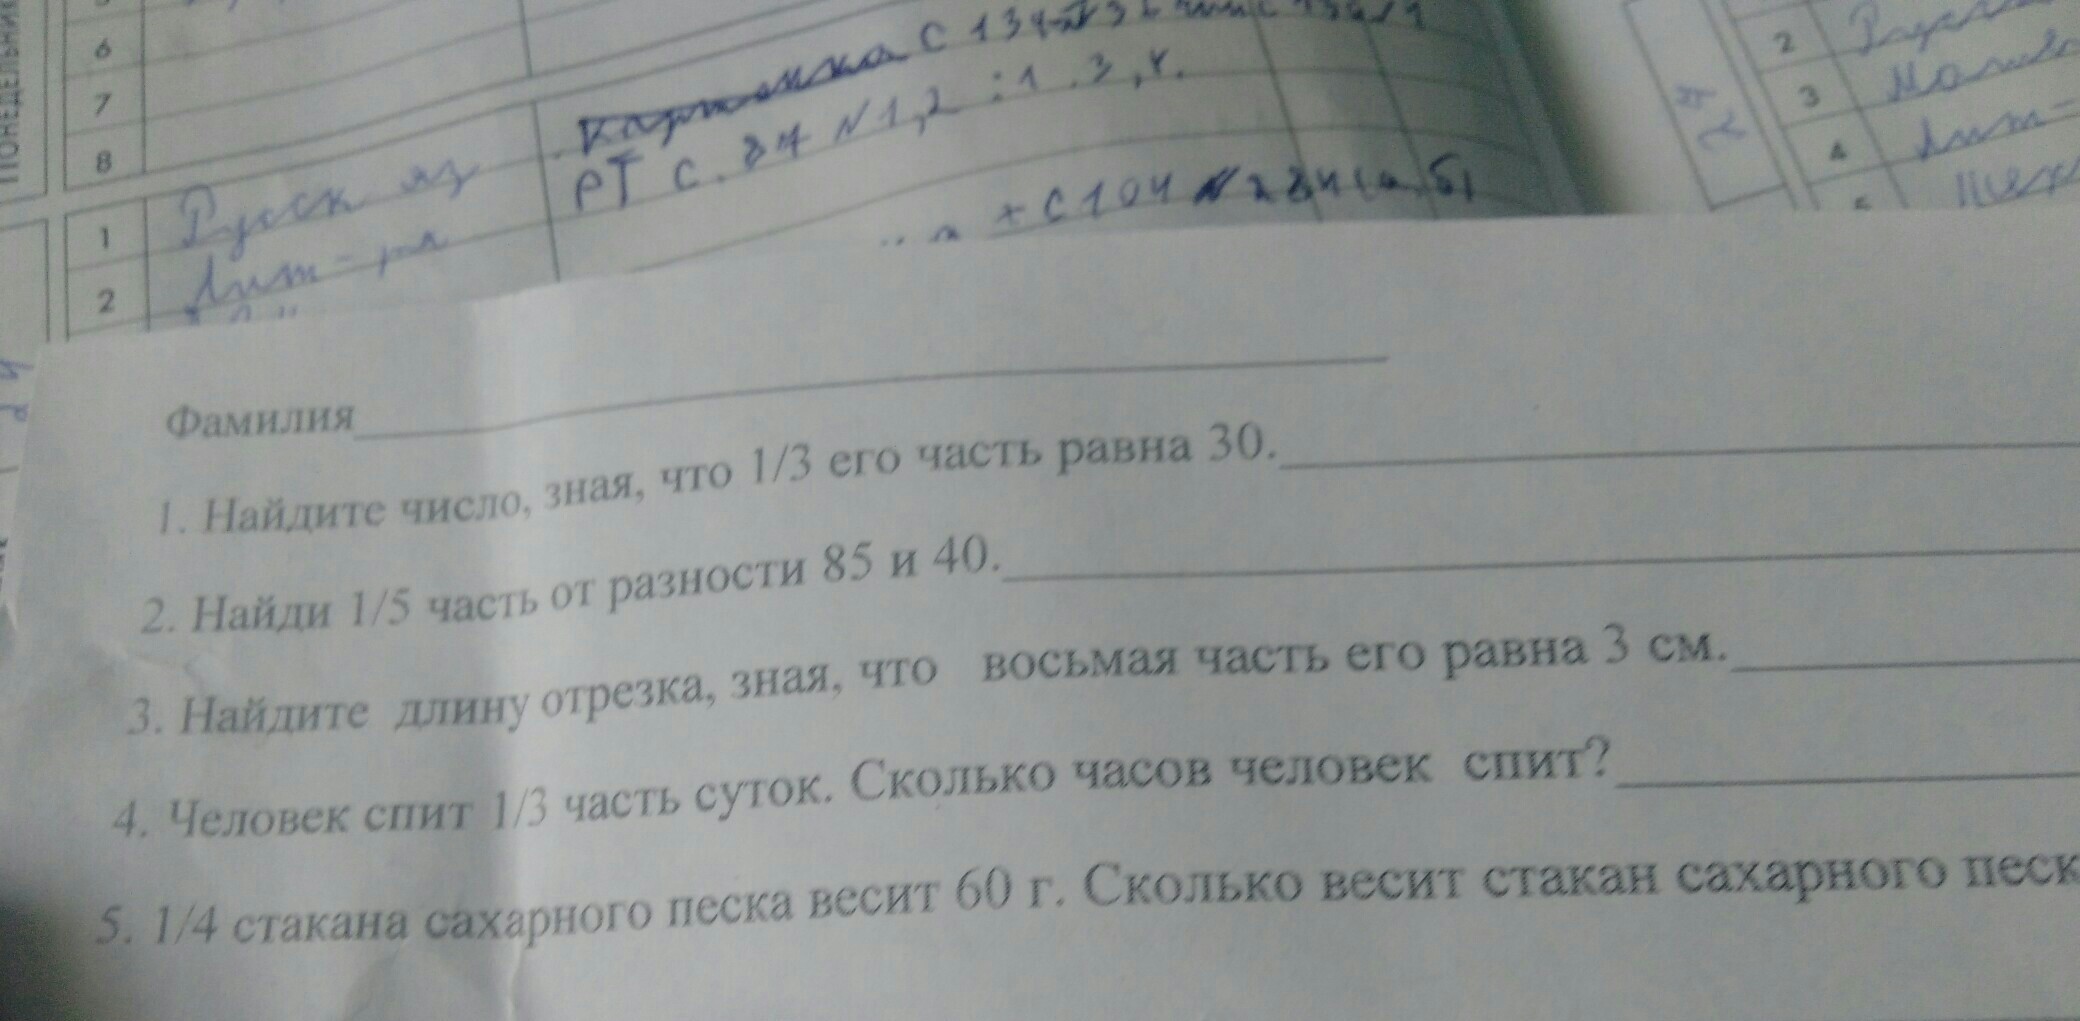 ПОНЕДЕЛЬНИК
6
7
8
РТ с. 84 N 1,2
1 Русск яз
2 Лит-ра
+ с 104
2
3
4 Лит-
Фамилия
1. Найдите число, зная, что 1/3 его часть равна 30.
2. Найди 1/5 часть от разности 85 и 40.
3. Найдите длину отрезка, зная, что восьмая часть его равна 3 см.
4. Человек спит 1/3 часть суток. Сколько часов человек спит?
5. 1/4 стакана сахарного песка весит 60 г. Сколько весит стакан сахарного песк